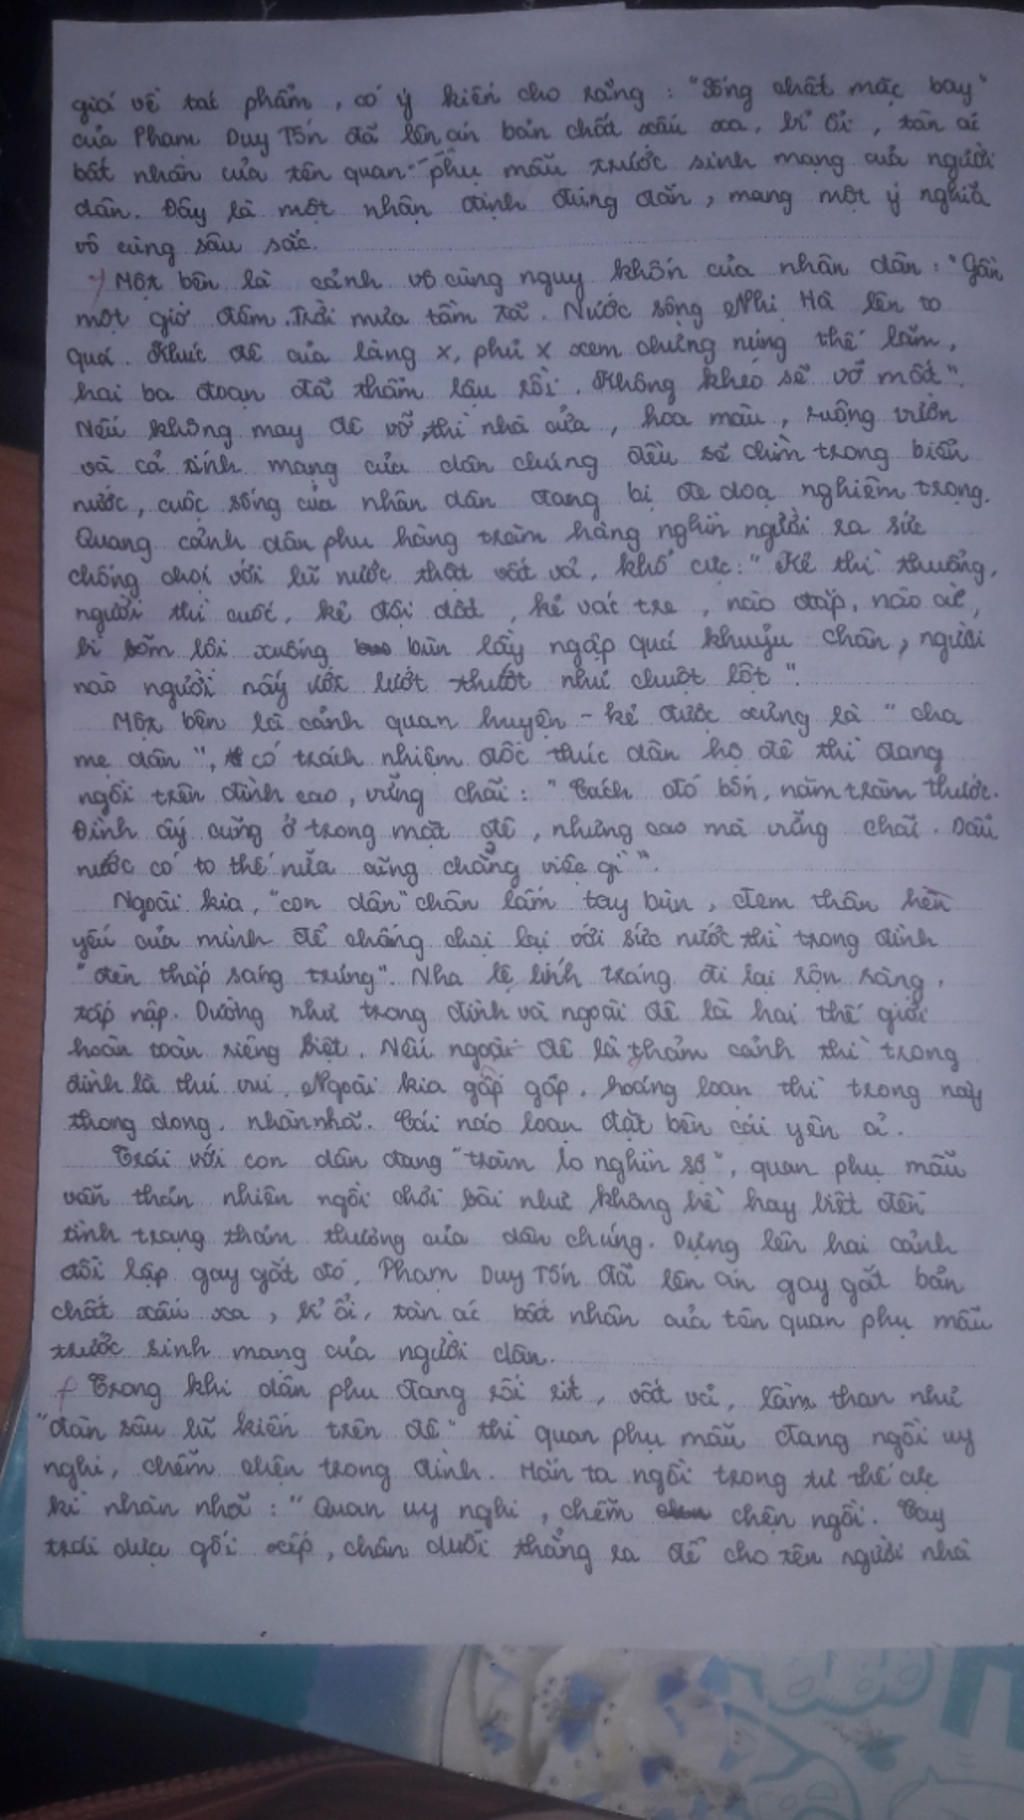 giá về tác phẩm, có ý kiến cho rằng : "Sống chết mặc bay"
của Phạm Duy Tốn đã lên án bản chất xấu xa, bỉ ổi, tàn ác
bất nhân của tên quan phụ mẫu trước sinh mạng của người
dân. Đây là một nhận định đúng đắn, mang một ý nghĩa
vô cùng sâu sắc.
Một bên là cảnh vô cùng nguy khốn của nhân dân : "Gần
một giờ đêm. Trời mưa tầm tã. Nước sông Nhị Hà lên to
quá. Khúc đê của làng X, phủ X xem chừng núng thế lắm,
hai ba đoạn đã thẩm lậu rồi. Không khéo sẽ vỡ mất".
Nếu không may đê vỡ, thì nhà cửa, hoa màu, ruộng vườn
và cả tính mạng của dân chúng đều sẽ chìm trong biển
nước, cuộc sống của nhân dân đang bị đe doạ nghiêm trọng.
Quang cảnh dân phu hàng trăm hàng nghìn người ra sức
chống chọi với lũ nước thật vất vả, khổ cực : " Kẻ thì thuổng,
người thì cuốc, kẻ đội đất, kẻ vác tre, nào đắp, nào cừ,
bì bõm lội xuống bùn lầy ngập quá khuỷu chân, người
nào người nấy ướt lướt thướt như chuột lột ".
Một bên là cảnh quan huyện - kẻ được xưng là " cha
mẹ dân ", có trách nhiệm đốc thúc dân hộ đê thì đang
ngồi trên đình cao, vững chãi : " Cách đó bốn, năm trăm thước.
Đình ấy cũng ở trong mặt đê, nhưng cao mà vững chãi. Dẫu
nước có to thế nữa cũng chẳng việc gì ".
Ngoài kia, "con dân" chân lấm tay bùn, đem thân hèn
yếu của mình để chống chọi lại với sức nước thì trong đình
"đèn thắp sáng trưng". Nha lệ lính tráng đi lại rộn ràng,
tấp nập. Dường như trong đình và ngoài đê là hai thế giới
hoàn toàn riêng biệt. Nếu ngoài đê là thảm cảnh thì trong
đình là thú vui. Ngoài kia gấp gấp, hoảng loạn thì trong này
thong dong, nhàn nhã. Cái náo loạn đặt bên cái yên ả.
Trái với con dân đang "trăm lo nghìn sợ", quan phụ mẫu
vẫn thản nhiên ngồi chơi bài như không hề hay biết đến
tình trạng thảm thương của dân chúng. Dựng lên hai cảnh
đối lập gay gắt đó, Phạm Duy Tốn đã lên án gay gắt bản
chất xấu xa, bỉ ổi, tàn ác bất nhân của tên quan phụ mẫu
trước sinh mạng của người dân.
Trong khi dân phu đang rối rít, vất vả, lầm than như
"đàn sâu lũ kiến trên đê" thì quan phụ mẫu đang ngồi uy
nghi, chễm chện trong đình. Hắn ta ngồi trong tư thế cực
kì nhàn nhã : " Quan uy nghi, chễm chện ngồi. Tay
trái dựa gối xếp, chân duỗi thẳng ra để cho tên người nhà